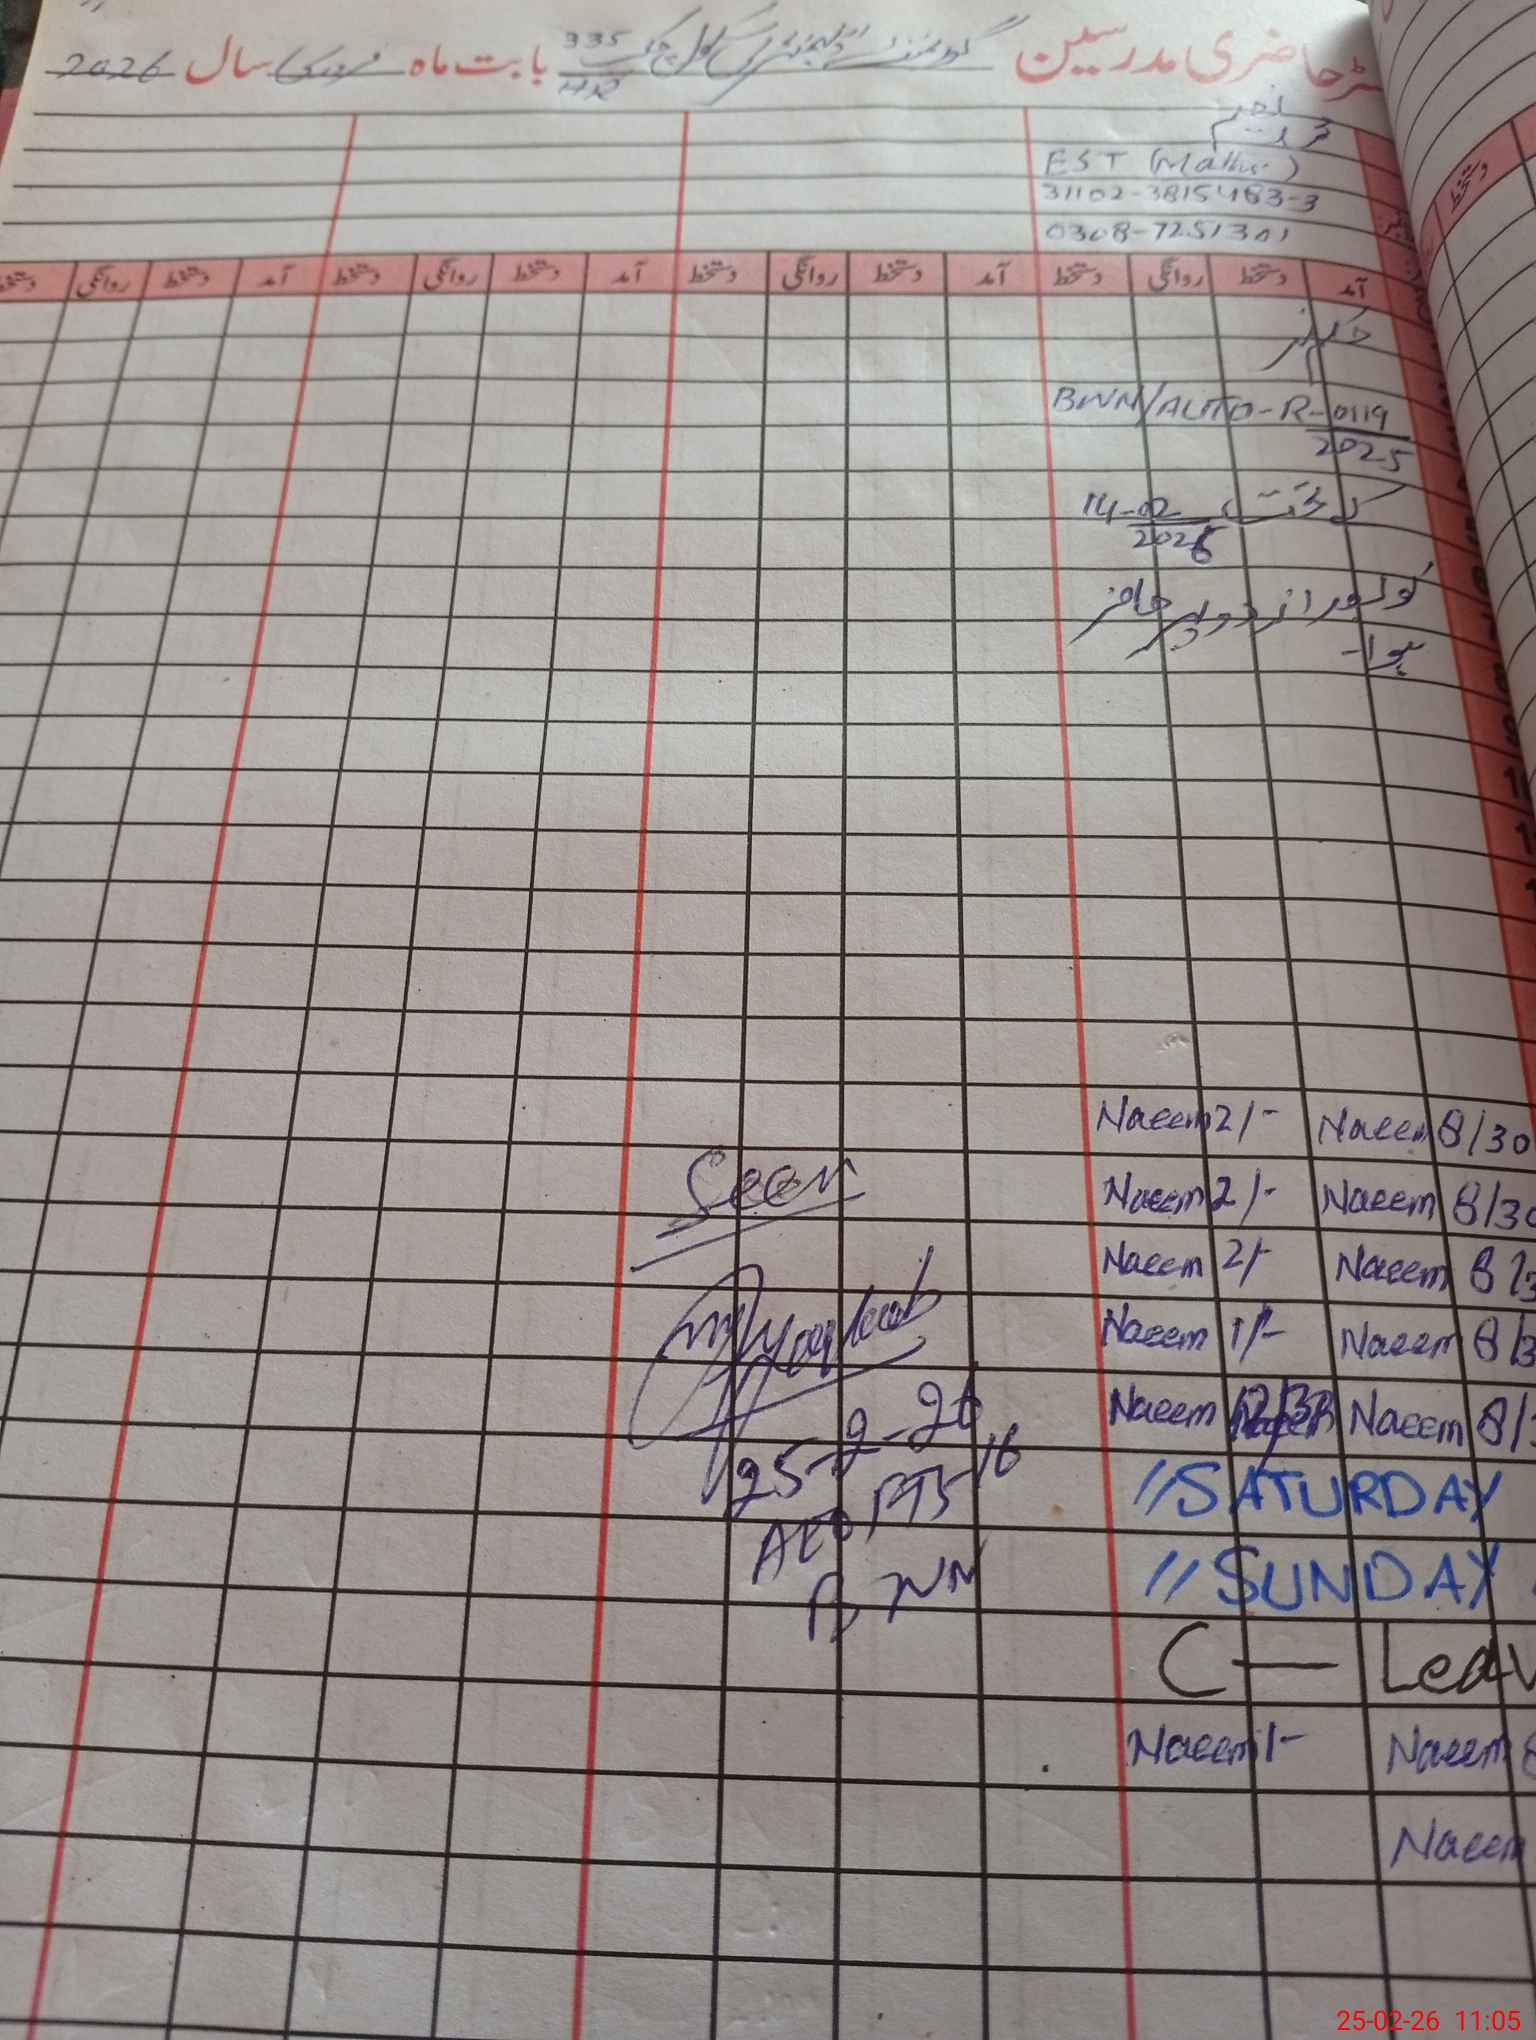 رجسٹر حاضری مدرسین گورنمنٹ ایلیمنٹری سکول چک 335/HR بابت ماہ فروری سال 2026
نعیم
EST (Maths)
31102-3815483-3
0308-7251301
آمد دستخط روانگی دستخط آمد دستخط روانگی دستخط آمد دستخط روانگی دستخط آمد دستخط روانگی دستخط
BWN/AUTO-R-0119
2025
14-02
2026
کو بعد از دوپہر حاضر
ہوا۔
8/30 Naeem 2/- Naeem
8/30 Naeem 2/- Naeem
8/3 Naeem 2/- Naeem
8/3 Naeem 1/- Naeem
8/ Naeem 12/30 Naeem
// SATURDAY
// SUNDAY
C — Leav
Naeem 1/- Naeem
Naeem
Seen
25-2-26
AEO BPS-16
BWN
25-02-26 11:05